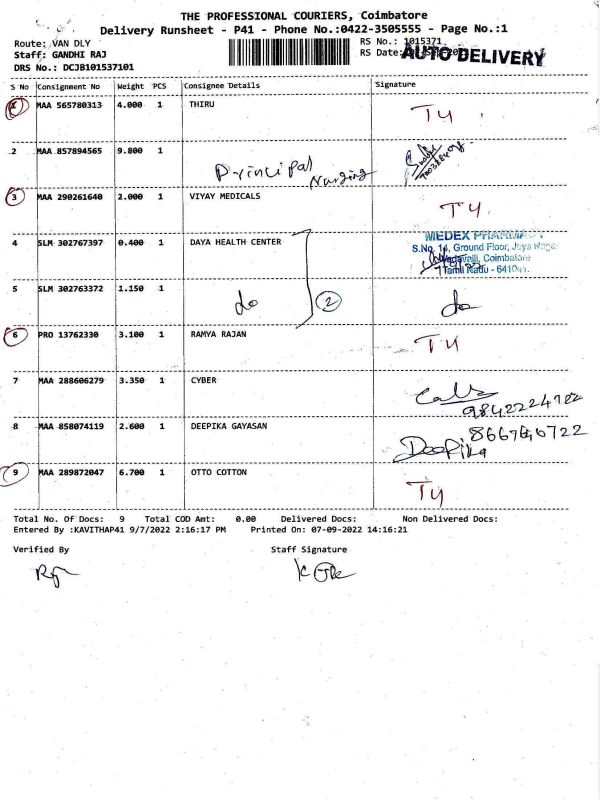 THE PROFESSIONAL COURIERS, Coimbatore
Delivery Runsheet - P41 - Phone No.:0422-3505555 - Page No.:1
Route: VAN DLY
RS No.: 1015371
Staff: GANDHI RAJ
RS Date: AUTO DELIVERY
DRS No.: DCJB101537101
S No Consignment No Weight PCS Consignee Details Signature
1 MAA 565780313 4.000 1 THIRU T4
2 MAA 857894565 9.800 1
Principal Nursing
3 MAA 290261640 2.000 1 VIYAY MEDICALS T4
4 SLM 302767397 0.400 1 DAYA HEALTH CENTER
MEDEX PHARMACY
S.No. 14, Ground Floor, Jaya Nagar
Vadavalli, Coimbatore
Tamil Nadu - 641041.
5 SLM 302763372 1.150 1
do 2 do
6 PRO 13762330 3.100 1 RAMYA RAJAN T4
7 MAA 288606279 3.350 1 CYBER
9842224722
8 MAA 858074119 2.600 1 DEEPIKA GAYASAN
Deepika
9 MAA 289872047 6.700 1 OTTO COTTON T4
Total No. Of Docs: 9 Total COD Amt: 0.00 Delivered Docs: Non Delivered Docs:
Entered By :KAVITHAP41 9/7/2022 2:16:17 PM Printed On: 07-09-2022 14:16:21
Verified By Staff Signature